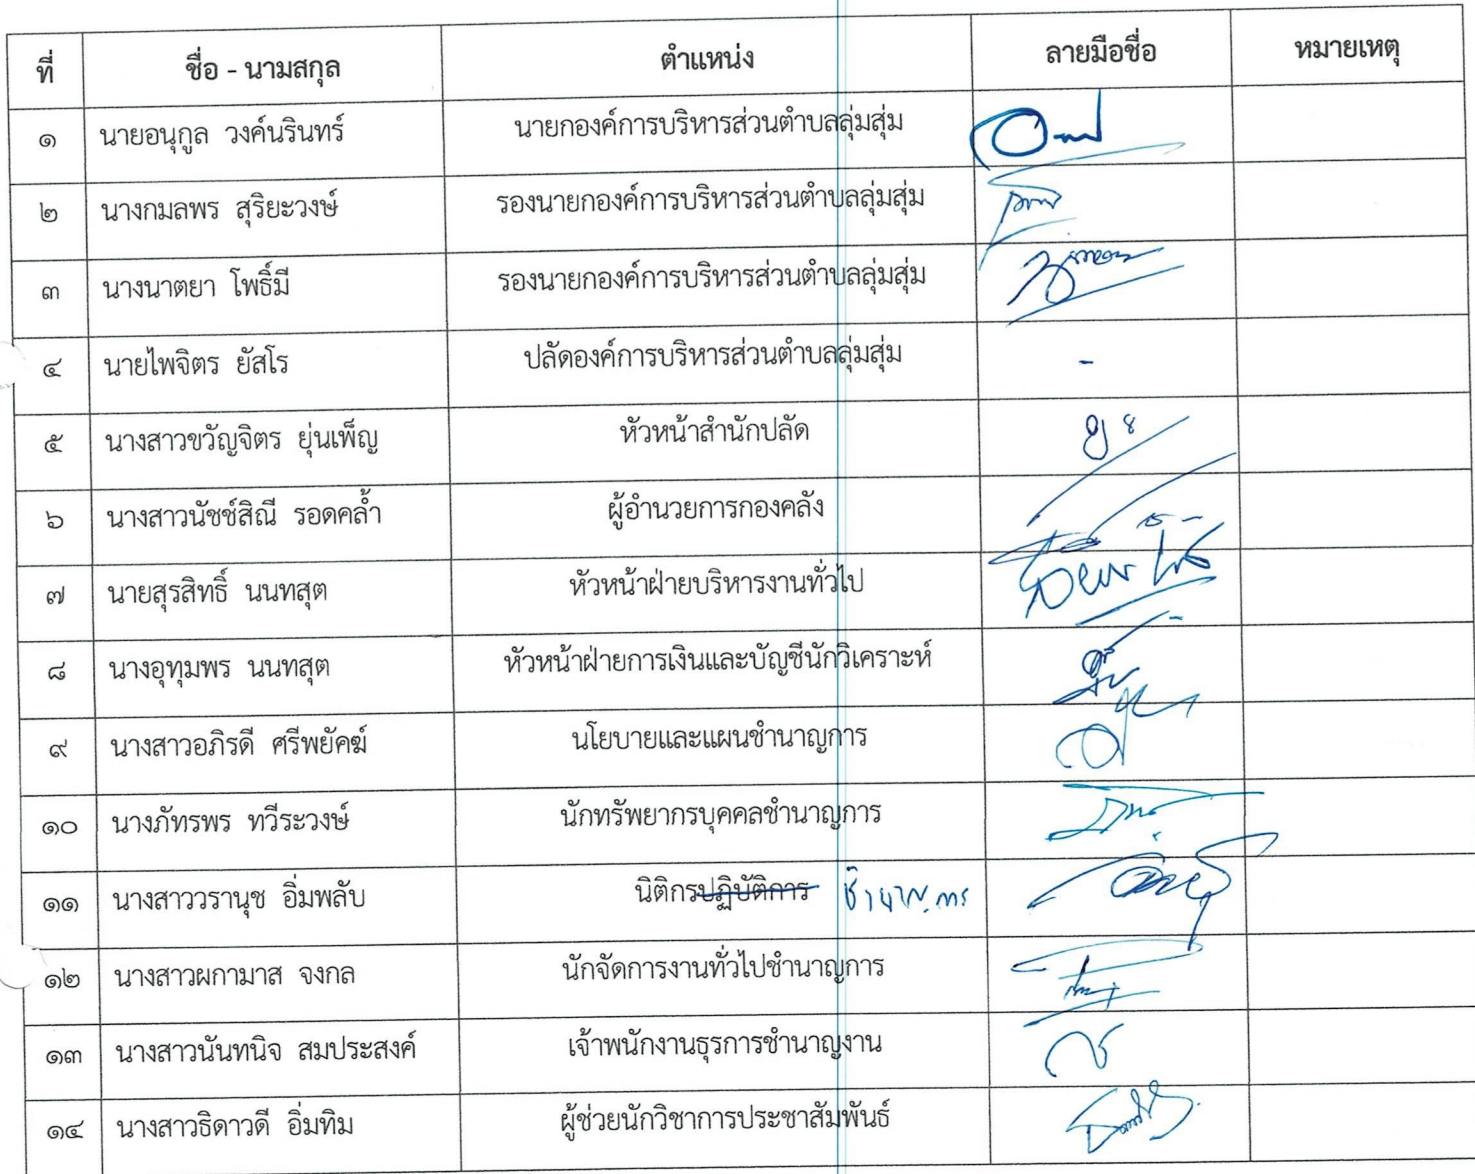 ที่ ชื่อ - นามสกุล ตำแหน่ง ลายมือชื่อ หมายเหตุ
๑ นายอนุกูล วงค์นรินทร์ นายกองค์การบริหารส่วนตำบลลุ่มสุ่ม
๒ นางกมลพร สุริยะวงษ์ รองนายกองค์การบริหารส่วนตำบลลุ่มสุ่ม
๓ นางนาตยา โพธิ์มี รองนายกองค์การบริหารส่วนตำบลลุ่มสุ่ม
๔ นายไพจิตร ยัสโร ปลัดองค์การบริหารส่วนตำบลลุ่มสุ่ม -
๕ นางสาวขวัญจิตร ยุ่นเพ็ญ หัวหน้าสำนักปลัด
๖ นางสาวนัชช์สิณี รอดคล้ำ ผู้อำนวยการกองคลัง
๗ นายสุรสิทธิ์ นนทสุต หัวหน้าฝ่ายบริหารงานทั่วไป
๘ นางอุทุมพร นนทสุต หัวหน้าฝ่ายการเงินและบัญชีนักวิเคราะห์
๙ นางสาวอภิรดี ศรีพยัคฆ์ นโยบายและแผนชำนาญการ
๑๐ นางภัทรพร ทวีระวงษ์ นักทรัพยากรบุคคลชำนาญการ
๑๑ นางสาววรานุช อิ่มพลับ นิติกรปฏิบัติการ ชำนาญการ
๑๒ นางสาวผกามาส จงกล นักจัดการงานทั่วไปชำนาญการ
๑๓ นางสาวนันทนิจ สมประสงค์ เจ้าพนักงานธุรการชำนาญงาน
๑๔ นางสาวธิดาวดี อิ่มทิม ผู้ช่วยนักวิชาการประชาสัมพันธ์